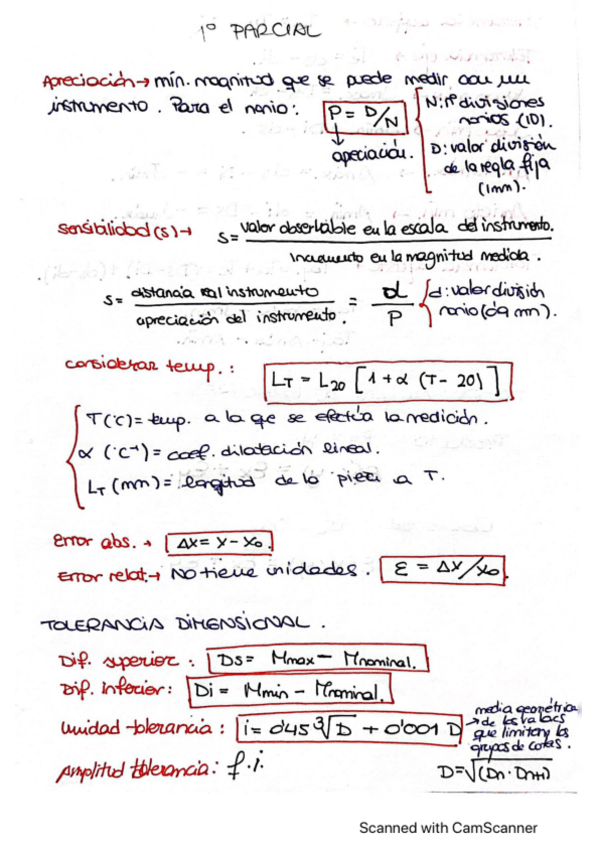 1º PARCIAL
Apreciación → mín. magnitud que se puede medir con un
instrumento. Para el nonio: P = D/N
N: nº divisiones
nonios (10).
apreciación.
D: valor división
de la regla fija
(1mm).
Sensibilidad (s) → S = valor observable en la escala del instrumento.
Incremento en la magnitud medida.
S = distancia real instrumento = d
apreciación del instrumento. P
d: valor división
nonio (0'9 mm).
considerar temp.: LT = L20 [1 + α (T - 20)]
T (ºC) = temp. a la que se efectúa la medición.
α (ºC⁻¹) = coef. dilatación lineal.
LT (mm) = longitud de la pieza a T.
Error abs. → Δx = x - x₀.
Error relat. → No tiene unidades. ε = Δx/x₀
TOLERANCIA DIMENSIONAL.
Dif. superior: Ds = Mmax - Mnominal.
Dif. inferior: Di = Mmin - Mnominal.
Unidad tolerancia: i = 0'45 ∛D + 0'001 D
→ media geométrica
de los valores
que limitan los
grupos de cotas.
Amplitud tolerancia: f.i.
D = √(Dn · Dn+1)
Scanned with CamScanner